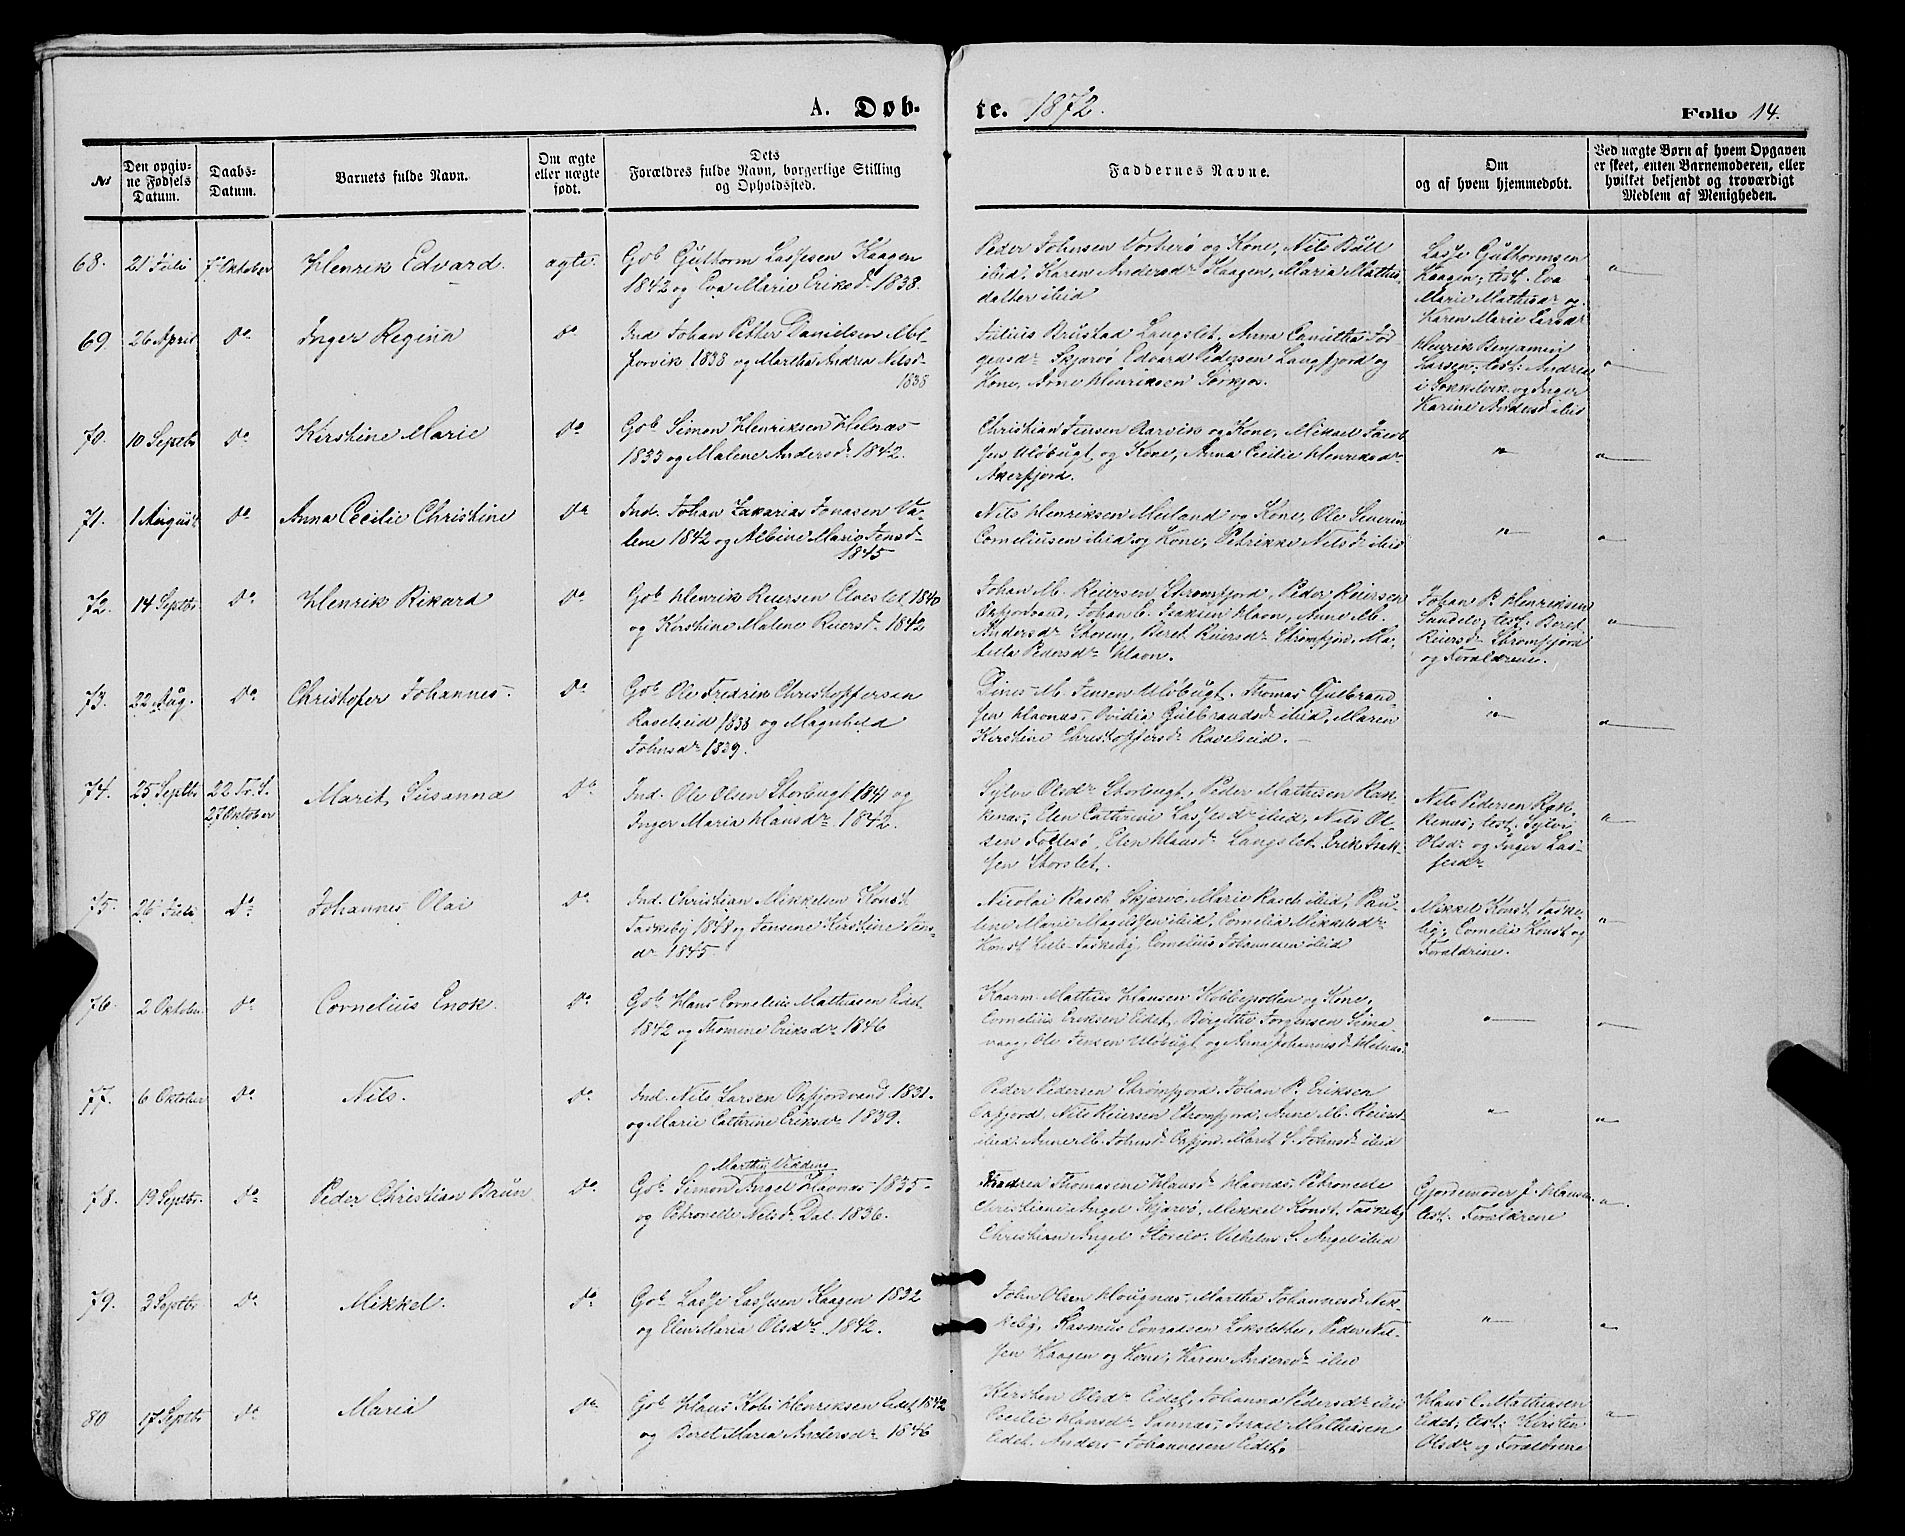 A. Døb- te. 1872. Folio 14.
No
Den opgiv-
ne Fødsels
Datum.
Daabs-
Datum.
Barnets fulde Navn.
Om ægte
eller uægte
født.
Dets
Forældres fulde Navn, borgerlige Stilling
og Opholdssted.
Faddernes Navne.
Om
og af hvem hjemmedøbt.
Ved uægte Børn af hvem Opgaven
er skeet, enten Barnemoderen, eller
hvilket bekjendt og troværdigt
Medlem af Menigheden.
68. 21 Juli 7 Oktober Henrik Edvard. ægte.
Gbr Guttorm Lassesen Kaagen
1842 og Eva Marie Eriksdr 1838.
Peder Johnsen Vorterø og Kone, Nils
ibid, Karen Andersdr Kaagen, Maria Mathis-
datter ibid
Lasse Guttormsen
Kaagen; test. Eva
Marie Mathisdr og
Karen Marie Larsdr
69. 26 April Do Inger Regina Do
Ind Johan Petter Danielsen
1838 og Martha Andrea Nilsdr
1838
Julius Brustad Langslet, Anna
Skjervø Edvard Pedersen Langfjord og
Kone, Arne Henriksen Sørkjos.
Henrik Benjamin
Larsen; test: Andrea
i Sokkelvik og Inger
Karine Andersdr ibid
70. 10 Septbr Do Kirstine Marie Do
Gbr Simon Henriksen Helnæs
1833 og Malene Andersdr 1842.
Christian Jensen Aarvik og Kone, Mikael Jacob-
sen Uløbugt og Kone, Anna Cecilie Henriksdr
Akerfjord.
71. 1 August Do Anna Cecilie Christine Do
Ind. Johan Zakarias Jonasen Va-
lene 1842 og Albine Marie Jensdr
1845
Nils Henriksen Meiland og Kone, Ole Severin
Corneliusen ibid og Kone, Petrikke Nilsdr ibid
72. 14 Septbr Do Henrik Rikard Do
Gbr Henrik Reiersen Elveslet 1840
og Kirstine Malene Reiersdr 1842
Johan M. Reiersen Strømfjord, Peder Reiersen
Oxfjordvand, Johan E. Isaksen Havn, Anne M.
Andersdr Storeng, Beret Reiersdr Strømfjord, Ma-
Pedersdr Havn.
Johan P. Henriksen
test. Beret
Reiersdr Strømfjord
og Forældrene.
73. 22 Aug. Do Christofer Johannes. Do
Gbr Ole Fredrik Christoffersen
Ravelseid 1838 og Magnhild
Johnsdr 1839.
Dines M. Jensen Uløbugt, Thomas Gulbrand-
sen Havnæs, Ovidia Gulbrandsdr ibid, Maren
Kirstine Christoffersdr Ravelseid.
74. 25 Septbr 22 Tr. S. Marit Susanna Do
27 Oktober
Ind. Ole Olsen Storbugt 1841 og
Inger Maria Hansdr 1842.
Sylvi Olsdr Storbugt, Peder Mathisen Rak-
kenæs, Elen Cathrine Lassesdr ibid, Nils Ol-
sen Follesø, Elen Hansdr Langslet, Erik Isak-
sen Storslet.
Nils Pedersen Rak-
kenæs; test. Sylvi
Olsdr og Inger Las-
sesdr
75. 26 Juli Do Johannes Olai Do
Ind. Christian Mikkelsen Konst
Taskeby 1848 og Jensene Kirstine Jens-
dr 1845.
Nicolai Rasch Skjervø, Marie Rasch ibid, Pau-
line Marie ibid, Cornelia Mikkelsdr
Konst Lille-Taskeby, Cornelius Johannesen ibid
Mikkel Konst Taske-
by; Cornelia Konst og
Forældrene.
76. 2 Oktober Do Cornelius Enok. Do
Gbr Hans Cornelius Mathisen Eidet
1842 og Thomine Eriksdr 1846
Kaarm. Mathis Hansen Kobbepollen og Kone,
Cornelius Eriksen Eidet, Birgitte Jørgensen Sima-
vaag, Ole Jensen Uløbugt og Anna Johannesdr Helnæs.
77. 6 Oktober Do Nils. Do
Ind. Nils Larsen Oxfjordvand 1831.
og Marie Cathrine Eriksdr 1839.
Peder Pedersen Strømfjord, Johan P. Eriksen
Oxfjord, Nils Reiersen Strømfjord, Anne M. Reiersdr
ibid, Anne M. Johnsdr Oxfjord, Marit S. Johnsdr ibid
78. 19 Septbr. Do Peder Christian Bruun Do
Marthin Vidding
Gbr Simon Angel Havnæs 1835
og Petronelle Nilsdr Dal 1836.
Thomasene Hansdr Havnæs, Petronelle
Christiane Angel Skjervø, Mikkel Konst Taskeby
Christian Angel Vilhelm S. Angel ibid
Gjordemoder J. Hansen
test. Forældrene
79. 3 Septbr Do Mikkel. Do
Gbr Lasse Lassesen Kaagen 1832
og Elen Maria Olsdr 1842.
John Olsen Hougnæs, Martha Johannesdr Nik-
keby, Rasmus Conradsen Lokslette, Peder Nil-
sen Kaagen og Kone, Karen Andersdr ibid
80 17 Septbr Do Maria Do
Gbr Hans Kobi Henriksen Eidet 1842
og Beret Maria Andersdr 1846
Kirsten Olsdr Eidet, Johanna Pedersdr ibid
Cecilie Hansdr Sannæs, Israel Mathiasen
Eidet, Anders Johannesen Eidet.
Hans C. Mathiasen
Eidet; test: Kirsten
Olsdr og Forældrene